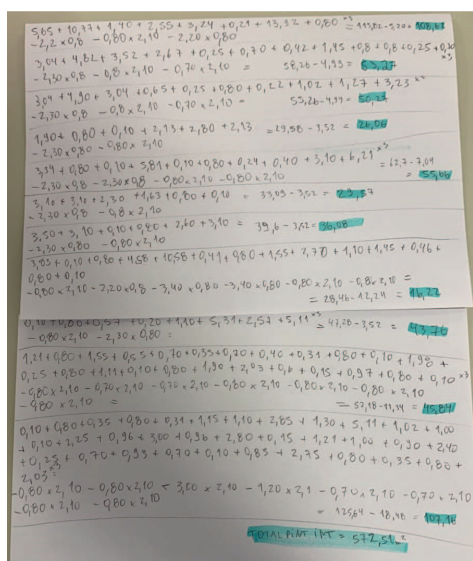 5,65 + 10,77 + 1,40 + 2,55 + 3,24 + 0,21 + 13,32 + 0,80 ×3 = 113,82 - 5,20 = 108,62
-2,2 × 0,8 - 0,80 × 2,10 - 2,20 × 0,80
3,04 + 4,82 + 3,52 + 2,67 + 0,25 + 0,70 + 0,42 + 1,45 + 0,8 + 0,8 + 0,25 + 0,70 ×3
-2,30 × 0,8 - 0,8 × 2,10 - 0,70 × 2,10 = 58,26 - 4,99 = 53,27
3,04 + 4,90 + 3,04 + 0,65 + 0,25 + 0,80 + 0,22 + 1,02 + 1,27 + 3,23 ×3
-2,30 × 0,8 - 0,8 × 2,10 - 0,70 × 2,10 = 55,26 - 4,99 = 50,27
1,90 + 0,80 + 0,10 + 2,13 + 2,80 + 2,13 = 29,58 - 3,52 = 26,06
-2,30 × 0,80 - 0,80 × 2,10
3,34 + 0,80 + 0,10 + 5,81 + 0,10 + 0,80 + 0,24 + 0,40 + 3,10 + 6,21 ×3 = 62,7 - 7,04
-2,30 × 0,8 - 2,30 × 0,8 - 0,80 × 2,10 - 0,80 × 2,10 = 55,66
3,10 + 3,10 + 2,30 + 1,63 + 0,80 + 0,10 = 33,09 - 3,52 =
-2,30 × 0,8 - 0,8 × 2,10
3,50 + 3,10 + 0,10 + 0,80 + 2,60 + 3,10 = 39,6 - 3,52 = 36,08
-2,30 × 0,80 - 0,80 × 2,10
3,05 + 0,10 + 0,80 + 4,58 + 10,58 + 0,41 + 0,80 + 1,55 + 2,70 + 1,10 + 1,45 + 0,46 +
0,80 + 0,10
-0,80 × 2,10 - 2,20 × 0,8 - 3,40 × 0,80 - 3,40 × 0,80 - 0,80 × 2,10 - 0,8 × 2,10 =
= 28,46 - 12,24 = 16,22
0,10 + 0,80 + 0,57 + 0,20 + 1,10 + 5,31 + 2,57 + 5,11 ×3 = 47,28 - 3,52 = 43,76
-0,80 × 2,10 - 2,30 × 0,80 =
1,21 + 0,80 + 1,55 + 0,55 + 0,70 + 0,35 + 0,20 + 0,40 + 0,31 + 0,80 + 0,10 + 1,98 +
0,25 + 0,80 + 1,11 + 0,10 + 0,80 + 1,90 + 2,03 + 0,6 + 0,15 + 0,97 + 0,80 + 0,10 ×3
-0,80 × 2,10 - 0,70 × 2,10 - 0,70 × 2,10 - 0,80 × 2,10 - 0,80 × 2,10 - 0,80 × 2,10
-0,80 × 2,10 = = 57,18 - 11,34 = 45,84
0,10 + 0,80 + 0,35 + 0,80 + 0,31 + 1,15 + 1,10 + 2,85 + 1,30 + 5,11 + 1,02 + 1,00
+ 0,10 + 2,25 + 0,96 + 3,00 + 0,96 + 2,80 + 0,15 + 1,21 + 1,00 + 0,90 + 2,40
+ 0,25 + 0,70 + 0,93 + 0,70 + 0,10 + 0,85 + 2,75 + 0,80 + 0,35 + 0,80 +
2,03 ×3
-0,80 × 2,10 - 0,80 × 2,10 - 3,00 × 2,10 - 1,20 × 2,1 - 0,70 × 2,10 - 0,70 × 2,10
-0,80 × 2,10 - 0,80 × 2,10 = 125,64 - 18,48 = 107,16
TOTAL PINT = 572,51 m²